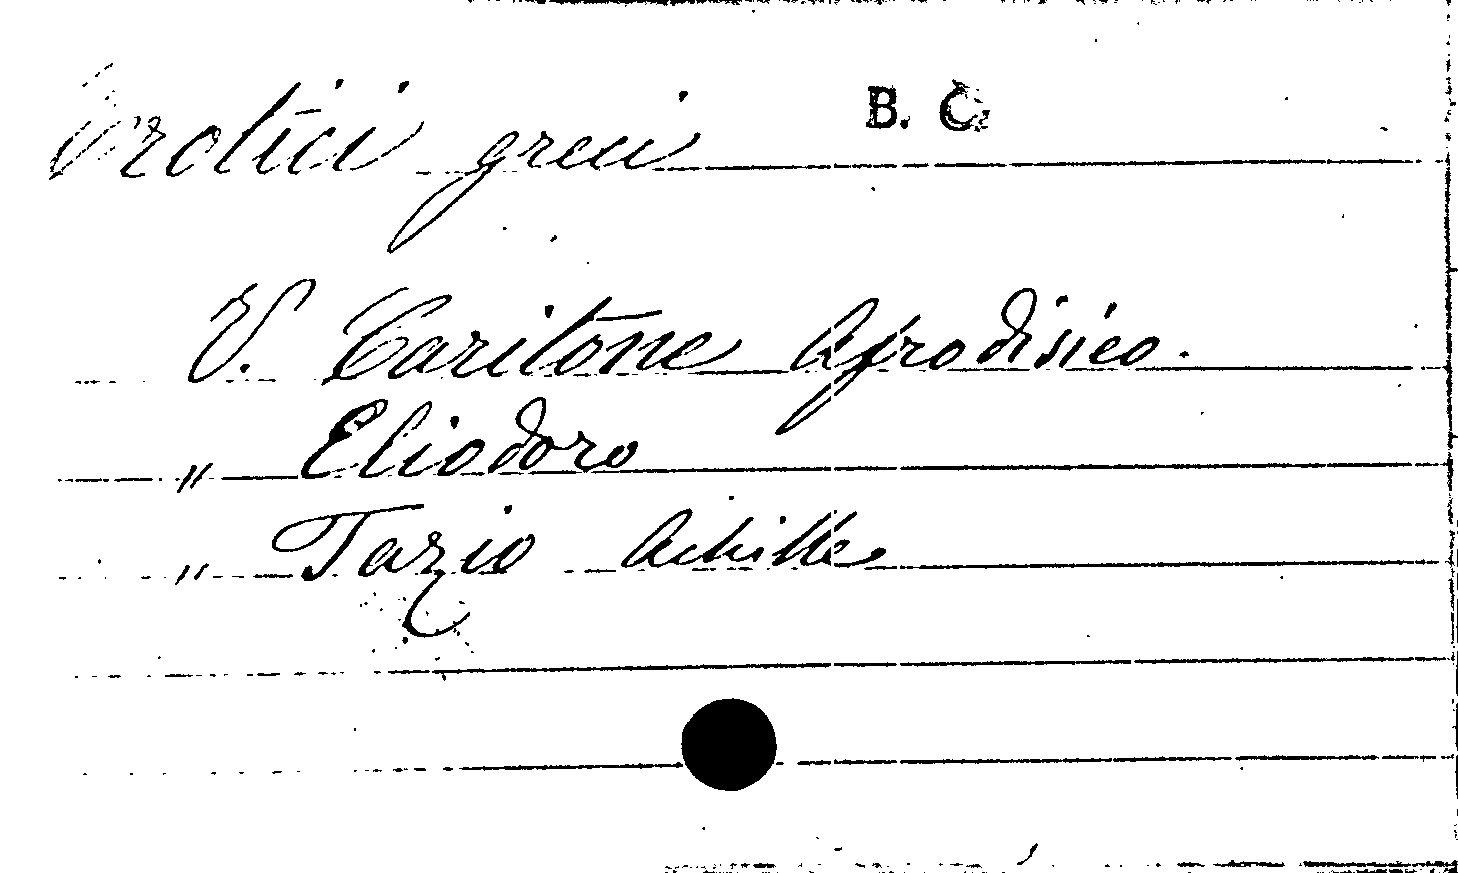 Erotici greci B. C.
V. Caritone Afrodisieo.
" Eliodoro
" Tazio Achille